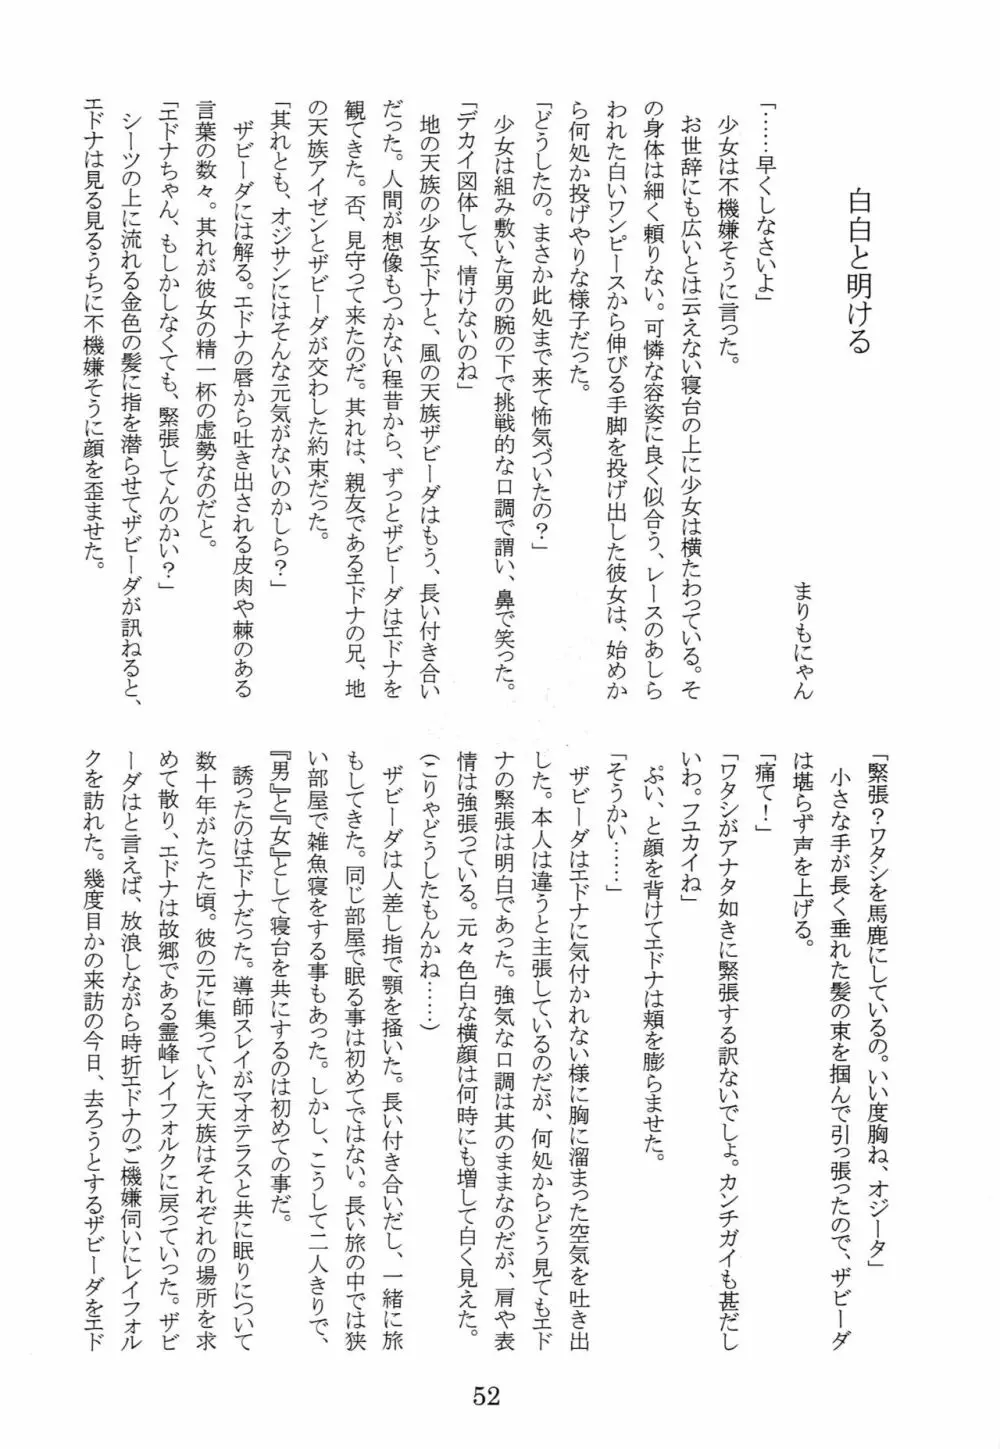 白白と明ける
まりもにゃん
「……早くしなさいよ」
少女は不機嫌そうに言った。
お世辞にも広いとは云えない寝台の上に少女は横たわっている。そ
の身体は細く頼りない。可憐な容姿に良く似合う、レースのあしら
われた白いワンピースから伸びる手脚を投げ出した彼女は、始めか
ら何処か投げやりな様子だった。
「どうしたの。まさか此処まで来て怖気づいたの？」
少女は組み敷いた男の腕の下で挑戦的な口調で謂い、鼻で笑った。
「デカイ図体して、情けないのね」
地の天族の少女エドナと、風の天族ザビーダはもう、長い付き合い
だった。人間が想像もつかない程昔から、ずっとザビーダはエドナを
観てきた。否、見守って来たのだ。其れは、親友であるエドナの兄、地
の天族アイゼンとザビーダが交わした約束だった。
「其れとも、オジサンにはそんな元気がないのかしら？」
ザビーダには解る。エドナの唇から吐き出される皮肉や棘のある
言葉の数々。其れが彼女の精一杯の虚勢なのだと。
「エドナちゃん、もしかしなくても、緊張してんのかい？」
シーツの上に流れる金色の髪に指を潜らせてザビーダが訊ねると、
エドナは見る見るうちに不機嫌そうに顔を歪ませた。
「緊張？ワタシを馬鹿にしているの。いい度胸ね、オジータ」
小さな手が長く垂れた髪の束を掴んで引っ張ったので、ザビーダ
は堪らず声を上げる。
「痛て！」
「ワタシがアナタ如きに緊張する訳ないでしょ。カンチガイも甚だし
いわ。フユカイね」
ぷい、と顔を背けてエドナは頬を膨らませた。
「そうかい……」
ザビーダはエドナに気付かれない様に胸に溜まった空気を吐き出
した。本人は違うと主張しているのだが、何処からどう見てもエド
ナの緊張は明白であった。強気な口調は其のままなのだが、肩や表
情は強張っている。元々色白な横顔は何時にも増して白く見えた。
（こりゃどうしたもんかね……）
ザビーダは人差し指で顎を掻いた。長い付き合いだし、一緒に旅
もしてきた。同じ部屋で眠る事は初めてではない。長い旅の中では狭
い部屋で雑魚寝をする事もあった。しかし、こうして二人きりで、
『男』と『女』として寝台を共にするのは初めての事だ。
誘ったのはエドナだった。導師スレイがマオテラスと共に眠りについて
数十年がたった頃。彼の元に集っていた天族はそれぞれの場所を求
めて散り、エドナは故郷である霊峰レイフォルクに戻っていった。ザビ
ーダはと言えば、放浪しながら時折エドナのご機嫌伺いにレイフォル
クを訪れた。幾度目かの来訪の今日、去ろうとするザビーダをエド
52